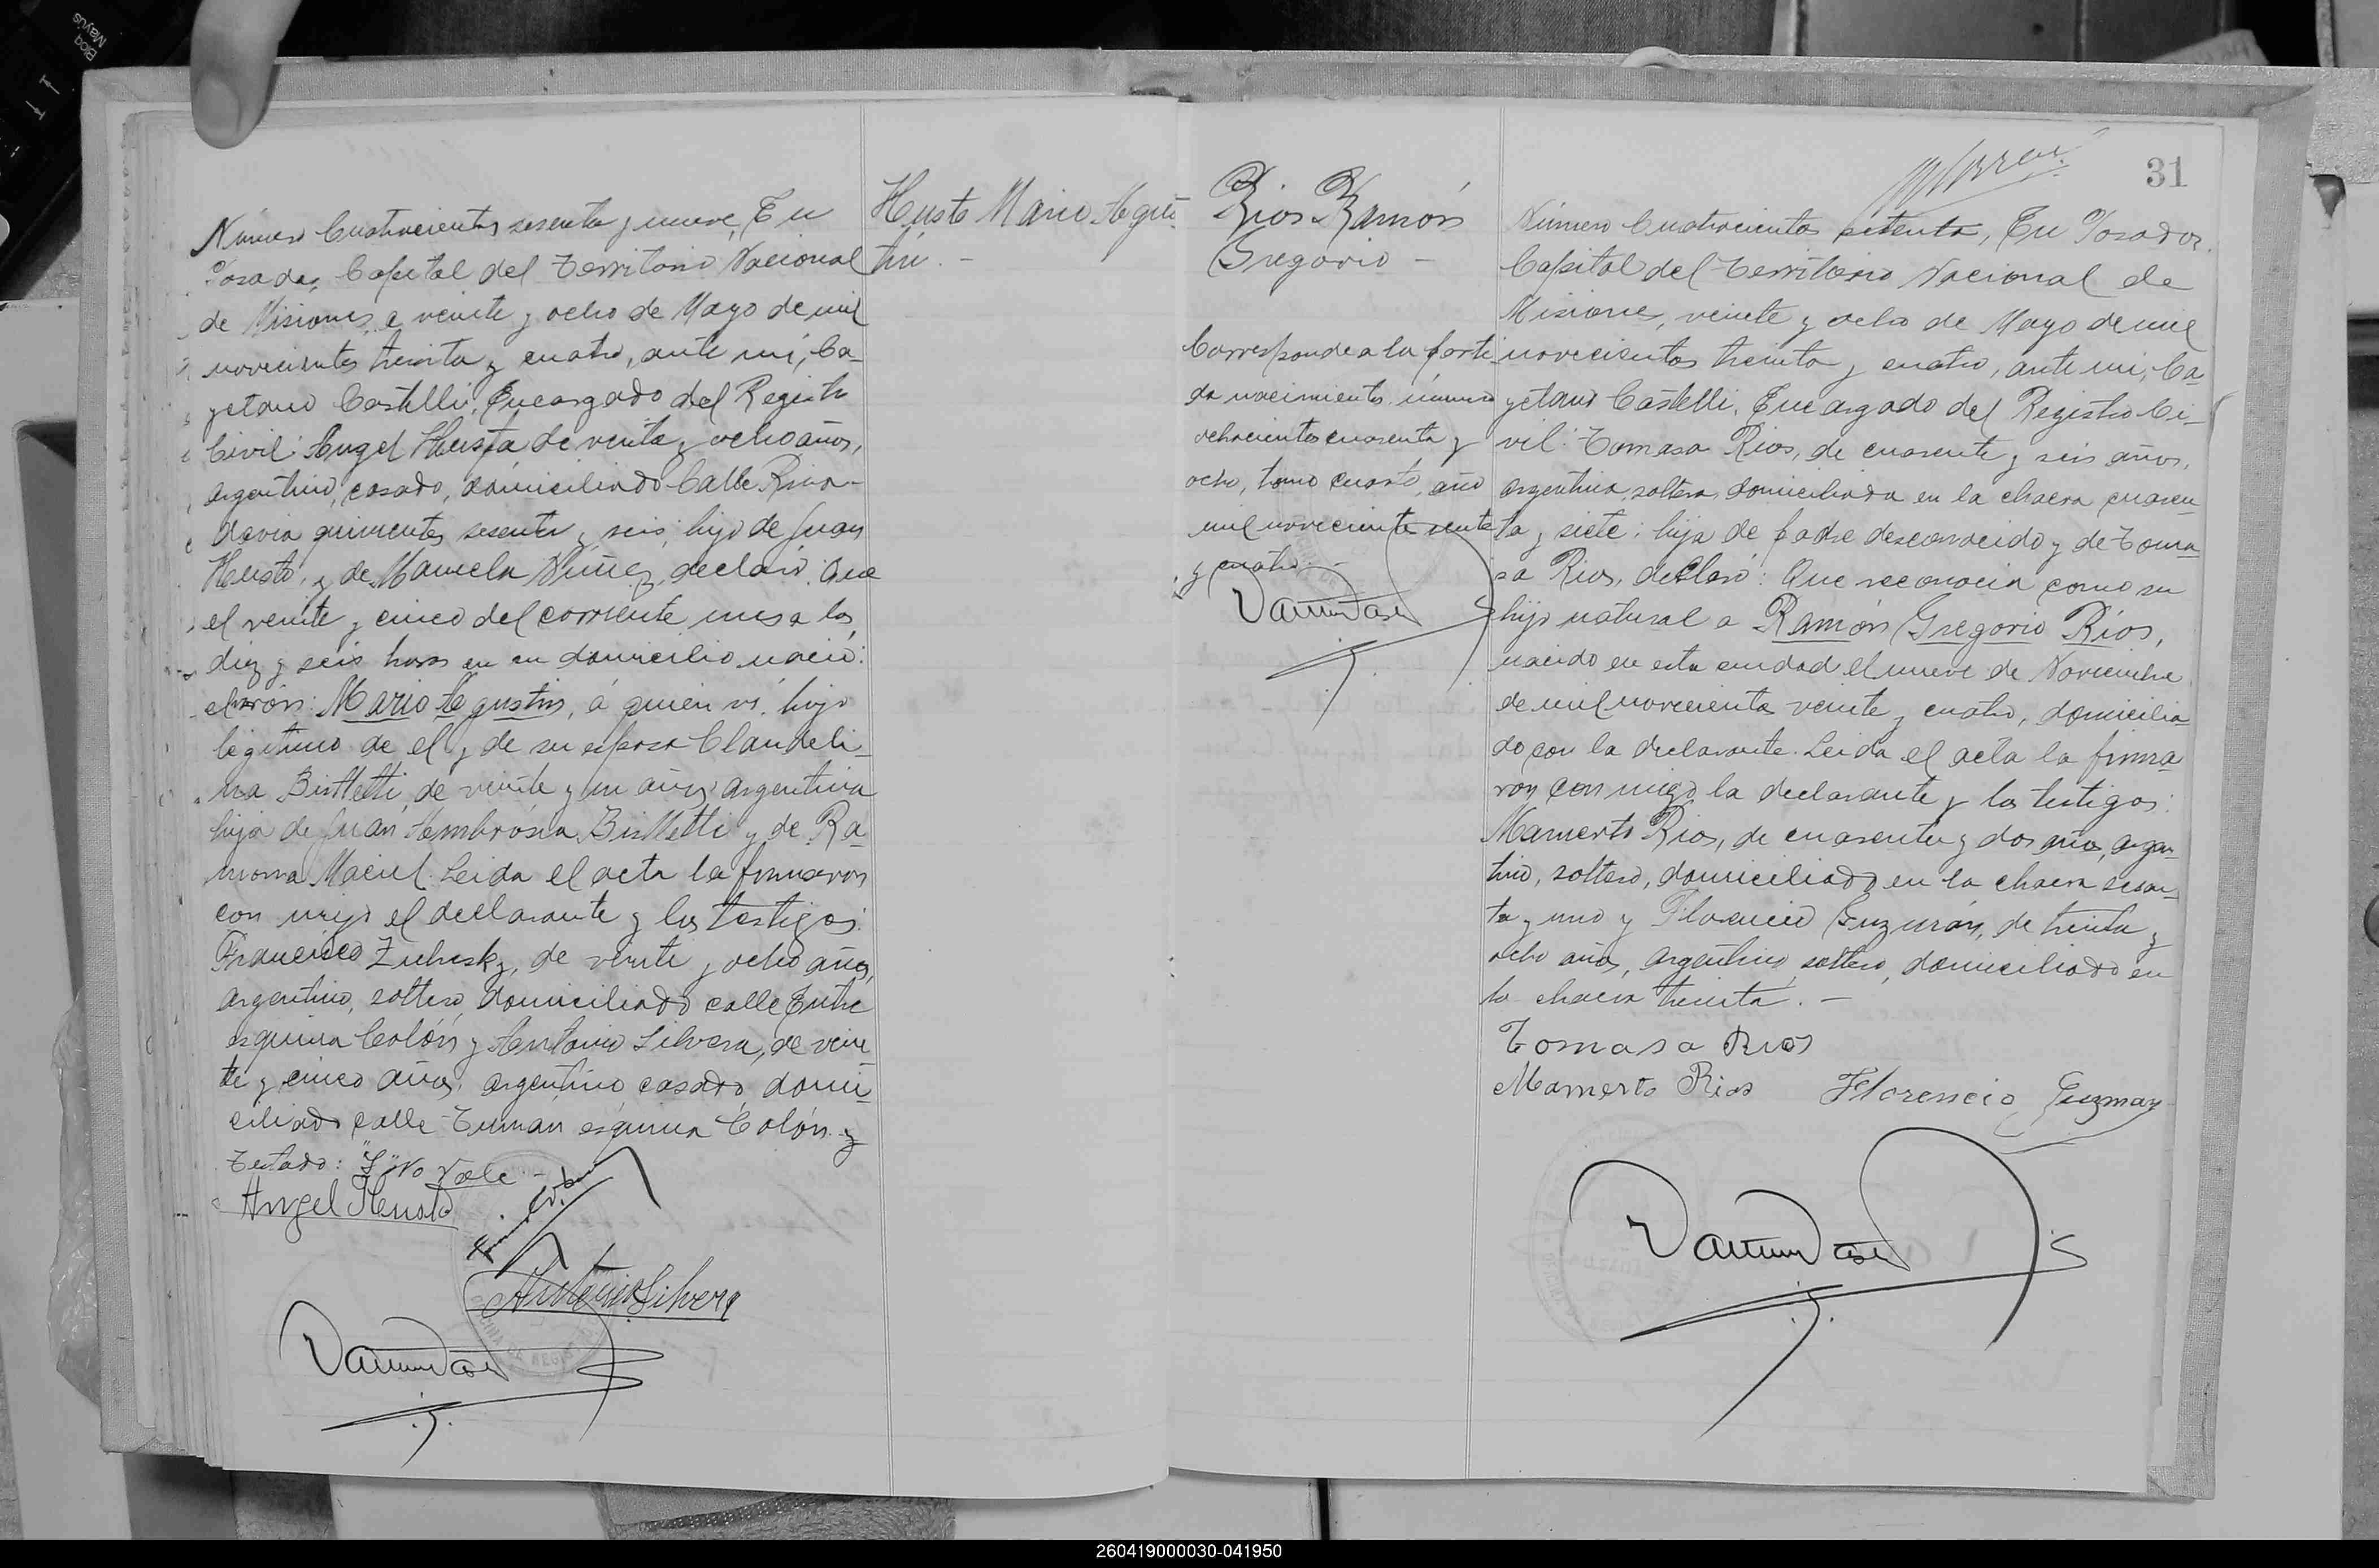 Número Cuatrocientos sesenta y nueve, En
Posadas, Capital del Territorio Nacional
de Misiones, a veinte y ocho de Mayo de mil
novecientos treinta y cuatro, ante mi, Ca-
yetano Castelli, Encargado del Registro
Civil: Angel Heusto de veinte y ocho años,
argentino, casado, domiciliado Calle Riva-
davia quinientos sesenta y seis, hijo de Juan
Heusto, y de Manuela Nuñez, declaró: Que
el veinte y cinco del corriente mes a las
diez y seis horas en su domicilio nació:
el varón: Mario Agustin, á quien ví, hijo
legitimo de el y de su esposa Claudeli-
na Bistletti, de veinte y un años argentina
hija de Juan Ambrosia Bistletti y de Ra-
mona Maciel. Leida el acta la firmaron
con migo el declarante y los testigos:
Francisco Zubresky, de veinte y ocho años,
argentino, soltero, domiciliado calle Entre
esquina Colón y Antonio Silvera, de vein-
te y cinco años, argentino, casado, domi-
ciliado calle Tucuman esquina Colón y
Testado: "y" No Vale -
Angel Heusto
Antonio Silvera
Heusto Mario Agus-
tin. -
31
Rios Ramón
Gregorio -
Corresponde a la parti-
da nacimiento número
ochocientos cuarenta y
ocho, tomo cuarto, año
mil novecientos veinte
y cuatro. -
Número Cuatrocientos setenta, En Posadas,
Capital del Territorio Nacional de
Misiones, veinte y ocho de Mayo de mil
novecientos treinta y cuatro, ante mi, Ca-
yetano Castelli, Encargado del Registro Ci-
vil: Tomasa Rios, de cuarenta y seis años,
argentina, soltera, domiciliada en la chacra cuaren-
ta y siete; hija de padre desconocido y de Toma-
sa Rios, declaró: Que reconocia como su
hijo natural a Ramón Gregorio Rios,
nacido en esta ciudad el nueve de Noviembre
de mil novecientos veinte y cuatro, domicilia-
do con la declarante. Leida el acta la firma-
ron con migo la declarante y los testigos:
Mamerto Rios, de cuarenta y dos años, argen-
tino, soltero, domiciliado en la chacra sesen-
ta y uno y Florencio Guzmán, de treinta y
ocho años, argentino, soltero, domiciliado en
la chacra treinta. -
Tomasa Rios
Mamerto Rios Florencio Guzman
260419000030-041950